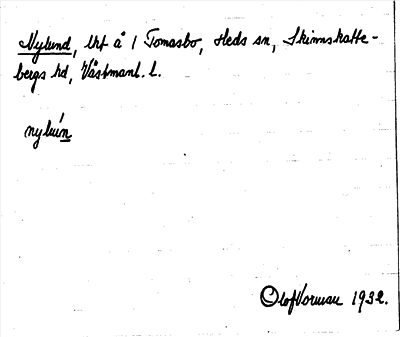 Nylund, lht å 1 Tomasbo, Heds sn, Skinnskatte-
bergs hd, Västmanl. l.
nylún
Olof Vorman 1932.